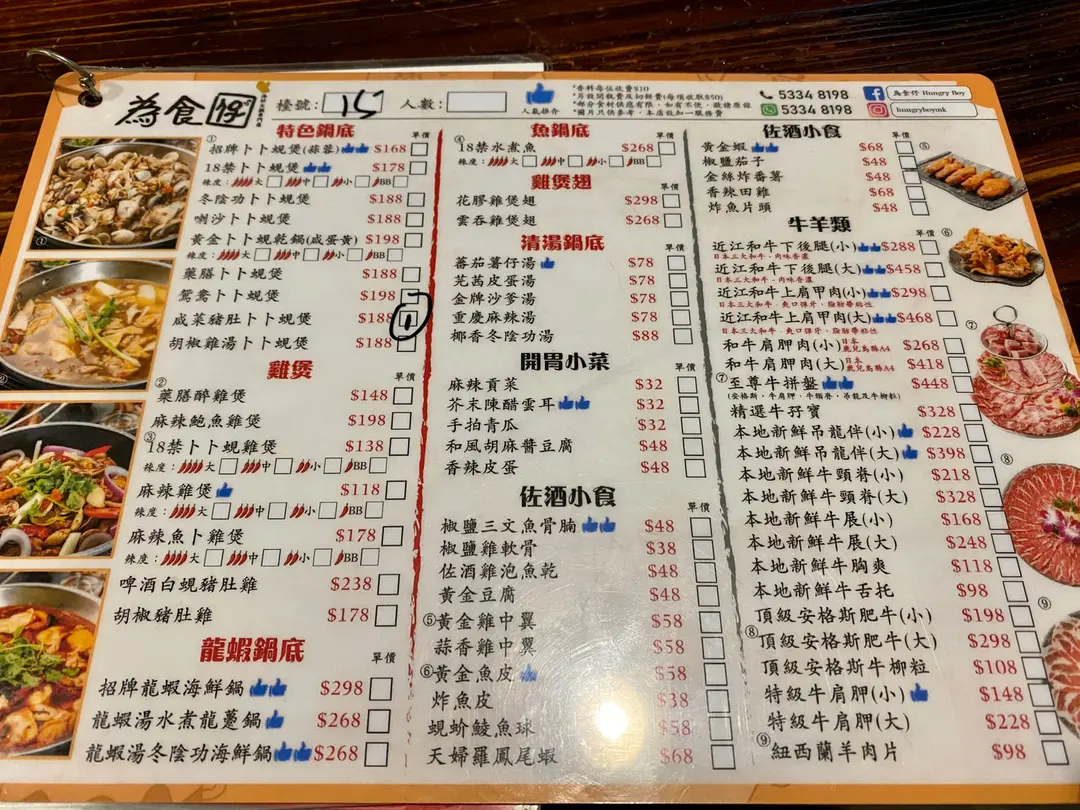 為食仔
檯號： 15 人數：
人氣推介
*香料每位收費$10
*另設開瓶費及切餅費(每項收取$50)
*部分食材供應有限，如有不便，敬請原諒
*圖片只供參考，本店設加一服務費
5334 8198
5334 8198
為食仔 Hungry Boy
hungryboymk
特色鍋底
單價
①招牌卜卜蜆煲(蒜蓉) $168
18禁卜卜蜆煲 $178
辣度： 大 中 小 BB
冬陰功卜卜蜆煲 $188
喇沙卜卜蜆煲 $188
黃金卜卜蜆乾鍋(咸蛋黃) $198
辣度： 大 中 小 BB
藥膳卜卜蜆煲 $188
鴛鴦卜卜蜆煲 $198
咸菜豬肚卜卜蜆煲 $188 1
胡椒雞湯卜卜蜆煲 $188
雞煲
單價
②藥膳醉雞煲 $148
麻辣鮑魚雞煲 $198
③18禁卜卜蜆雞煲 $138
辣度： 大 中 小 BB
麻辣雞煲 $118
辣度： 大 中 小 BB
麻辣魚卜雞煲 $178
辣度： 大 中 小 BB
啤酒白蜆豬肚雞 $238
胡椒豬肚雞 $178
龍蝦鍋底
單價
招牌龍蝦海鮮鍋 $298
龍蝦湯水煮龍躉鍋 $268
龍蝦湯冬陰功海鮮鍋 $268
魚鍋底
單價
④18禁水煮魚 $268
辣度： 大 中 小 BB
雞煲翅
單價
花膠雞煲翅 $298
雲吞雞煲翅 $268
清湯鍋底
單價
蕃茄薯仔湯 $78
芫茜皮蛋湯 $78
金牌沙爹湯 $78
重慶麻辣湯 $78
椰香冬陰功湯 $88
開胃小菜
單價
麻辣貢菜 $32
芥末陳醋雲耳 $32
手拍青瓜 $32
和風胡麻醬豆腐 $48
香辣皮蛋 $48
佐酒小食
單價
椒鹽三文魚骨腩 $48
椒鹽雞軟骨 $38
佐酒雞泡魚乾 $48
黃金豆腐 $48
⑤黃金雞中翼 $58
蒜香雞中翼 $58
⑥黃金魚皮 $58
炸魚皮 $38
蜆蚧鯪魚球 $58
天婦羅鳳尾蝦 $68
佐酒小食
單價
黃金蝦 $68
椒鹽茄子 $48
金絲炸番薯 $48
香辣田雞 $68
炸魚片頭 $48
牛羊類
單價
近江和牛下後腿(小) $288
日本三大和牛，肉味香濃
近江和牛下後腿(大) $458
日本三大和牛，肉味香濃
近江和牛上肩甲肉(小) $298
日本三大和牛，爽口彈牙，脂肪帶粘性
近江和牛上肩甲肉(大) $468
日本三大和牛，爽口彈牙，脂肪帶粘性
和牛肩胛肉(小) 日本鹿兒島縣A4 $268
和牛肩胛肉(大) 日本鹿兒島縣A4 $418
⑦至尊牛拼盤 $448
(安格斯，牛肩胛，牛頸脊，吊龍及牛柳粒)
精選牛孖寶 $328
本地新鮮吊龍伴(小) $228
本地新鮮吊龍伴(大) $398
本地新鮮牛頸脊(小) $218
本地新鮮牛頸脊(大) $328
本地新鮮牛展(小) $168
本地新鮮牛展(大) $248
本地新鮮牛胸爽 $118
本地新鮮牛舌托 $98
頂級安格斯肥牛(小) $198
⑧頂級安格斯肥牛(大) $298
頂級安格斯牛柳粒 $108
特級牛肩胛(小) $148
特級牛肩胛(大) $228
⑨紐西蘭羊肉片 $98
①
②
⑤
⑥
⑦
⑧
⑨